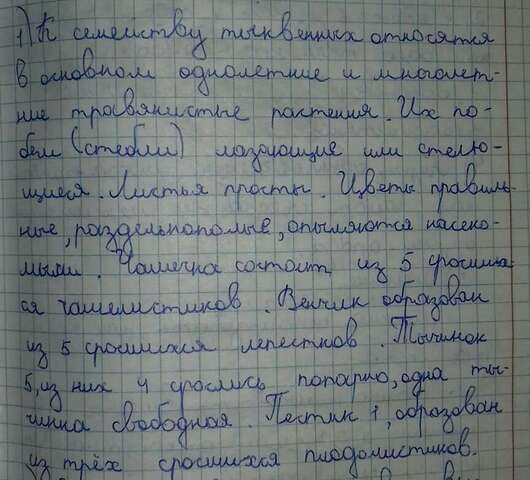 1) К семейству тыквенных относятся
в основном однолетние и многолет-
ние травянистые растения. Их по-
беги (стебли) лазающие или стелю-
щиеся. Листья просты. Цветы правиль-
ные, раздельнополые, опыляются насеко-
мыми. Чашечка состоит из 5 сросших-
ся чашелистиков. Венчик образован
из 5 сросшихся лепестков. Тычинок
5, из них 4 срослись попарно, одна ты-
чинка свободная. Пестик 1, образован
из трёх сросшихся плодолистиков.